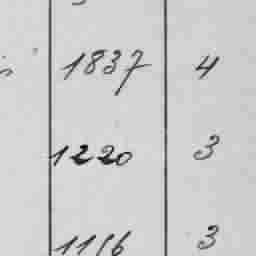 1837 4
1220 3
1116 3